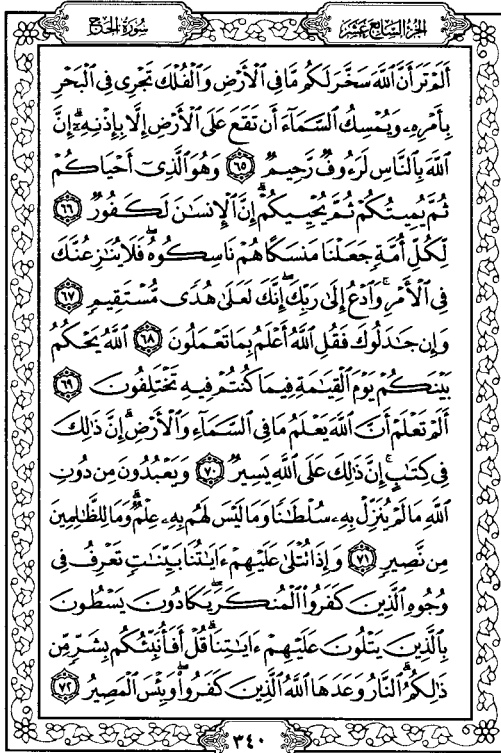 الجزء السابع عشر
سورة الحج
أَلَمْ تَرَ أَنَّ ٱللَّهَ سَخَّرَ لَكُم مَّا فِي ٱلْأَرْضِ وَٱلْفُلْكَ تَجْرِي فِي ٱلْبَحْرِ
بِأَمْرِهِۦ وَيُمْسِكُ ٱلسَّمَآءَ أَن تَقَعَ عَلَى ٱلْأَرْضِ إِلَّا بِإِذْنِهِۦٓ ۗ إِنَّ
ٱللَّهَ بِٱلنَّاسِ لَرَءُوفٌ رَّحِيمٌ ٦٥ وَهُوَ ٱلَّذِيٓ أَحْيَاكُمْ
ثُمَّ يُمِيتُكُمْ ثُمَّ يُحْيِيكُمْ ۗ إِنَّ ٱلْإِنسَٰنَ لَكَفُورٌ ٦٦
لِّكُلِّ أُمَّةٍ جَعَلْنَا مَنسَكًا هُمْ نَاسِكُوهُ ۖ فَلَا يُنَٰزِعُنَّكَ
فِي ٱلْأَمْرِ ۚ وَٱدْعُ إِلَىٰ رَبِّكَ ۖ إِنَّكَ لَعَلَىٰ هُدًى مُّسْتَقِيمٍ ٦٧
وَإِن جَٰدَلُوكَ فَقُلِ ٱللَّهُ أَعْلَمُ بِمَا تَعْمَلُونَ ٦٨ ٱللَّهُ يَحْكُمُ
بَيْنَكُمْ يَوْمَ ٱلْقِيَٰمَةِ فِيمَا كُنتُمْ فِيهِ تَخْتَلِفُونَ ٦٩
أَلَمْ تَعْلَمْ أَنَّ ٱللَّهَ يَعْلَمُ مَا فِي ٱلسَّمَآءِ وَٱلْأَرْضِ ۗ إِنَّ ذَٰلِكَ
فِي كِتَٰبٍ ۚ إِنَّ ذَٰلِكَ عَلَى ٱللَّهِ يَسِيرٌ ٧٠ وَيَعْبُدُونَ مِن دُونِ
ٱللَّهِ مَا لَمْ يُنَزِّلْ بِهِۦ سُلْطَٰنًا وَمَا لَيْسَ لَهُم بِهِۦ عِلْمٌ ۗ وَمَا لِلظَّٰلِمِينَ
مِن نَّصِيرٍ ٧١ وَإِذَا تُتْلَىٰ عَلَيْهِمْ ءَايَٰتُنَا بَيِّنَٰتٍ تَعْرِفُ فِي
وُجُوهِ ٱلَّذِينَ كَفَرُوا۟ ٱلْمُنكَرَ ۖ يَكَادُونَ يَسْطُونَ
بِٱلَّذِينَ يَتْلُونَ عَلَيْهِمْ ءَايَٰتِنَا ۗ قُلْ أَفَأُنَبِّئُكُم بِشَرٍّ مِّن
ذَٰلِكُمُ ۗ ٱلنَّارُ وَعَدَهَا ٱللَّهُ ٱلَّذِينَ كَفَرُوا۟ ۖ وَبِئْسَ ٱلْمَصِيرُ ٧٢
٣٤٠